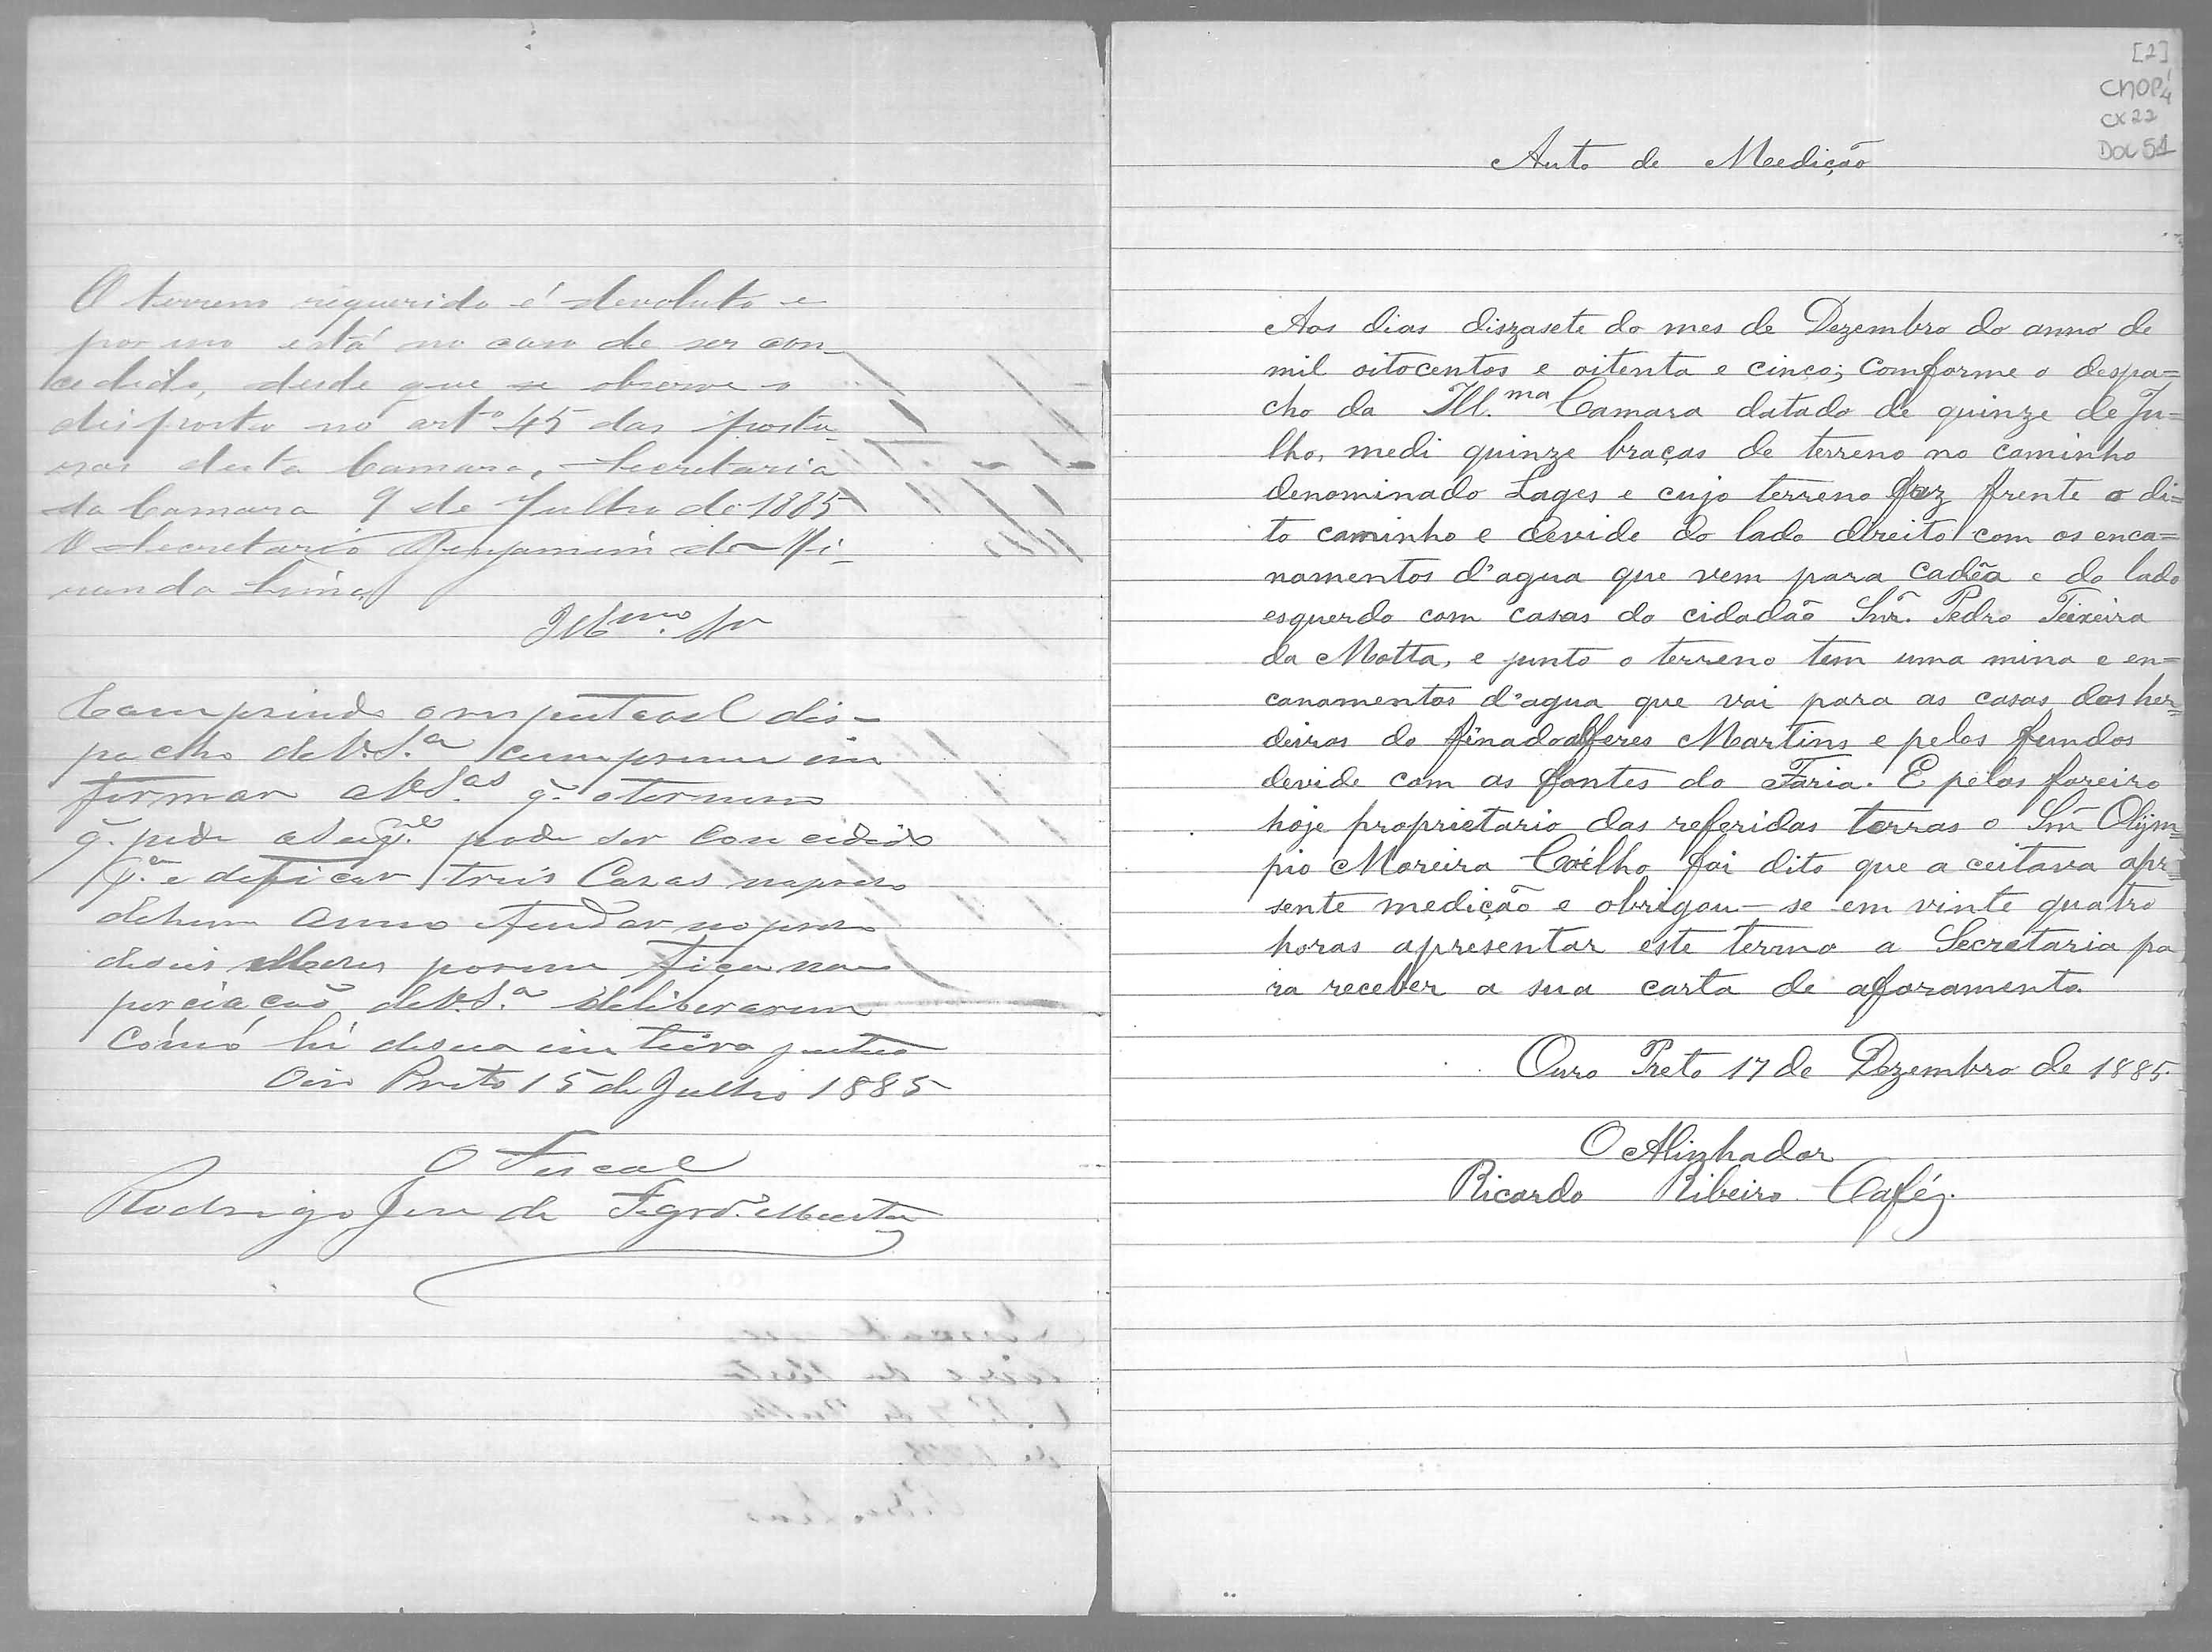 O terreno requerido é devoluto e
por isso está no caso de ser con-
cedido, desde que se observe o
disposto no artº 45 das postu-
ras desta Camara, Secretaria
da Camara 9 de Julho de 1885
O Secretario Benjamim de Mi-
randa Lima
Illmo. Snr
Comprindo o respeitavel dis-
pacho de V. S.ª cumpreme in
formar a V. S.as q. o terreno
q. pede a Supe. pode ser concedido
p.ª edeficar treis Casas no praso
de hum anno
de seis Meses porem fica na
de V. S.ª deliberarem
Cómó lhi de sua inteira justica
Oiro Preto 15 de Julho 1885
O Fiscal
Rodrigo José de Figrdo. Murta
[2]
CMOP
CX 22
DOC 51
Auto de Medição
Aos dias diszasete do mes de Dezembro do anno de
mil oitocentos e oitenta e cinco; Comforme o despa=
cho da Ill.ma Camara datado de quinze de Ju=
lho, medi quinze braças de terreno no caminho
denominado Lages e cujo terreno faz frente o di=
to caminho e devide do lado direito com os enca=
namentos d'agua que vem para cadêa e do lado
esquerdo com casas do cidadão Snr. Pedro Teixeira
da Motta, e junto o terreno tem uma mina e en=
canamentos d'agua que vai para as casas dos her=
deiros do finado alferes Martins e pelos fundos
devide com as fontes do Faria. E pelos foreiro
hoje proprietario das referidas terras o Snr Olÿm=
pio Moreira Coêlho foi dito que a ceitava apr=
sente medição e obrigou-se em vinte quatro
horas apresentar este termo a Secretaria pa
ra receber a sua carta de aforamento.
Ouro Preto 17 de Dezembro de 1885.
O Alinhador
Ricardo Ribeiro Caféz.